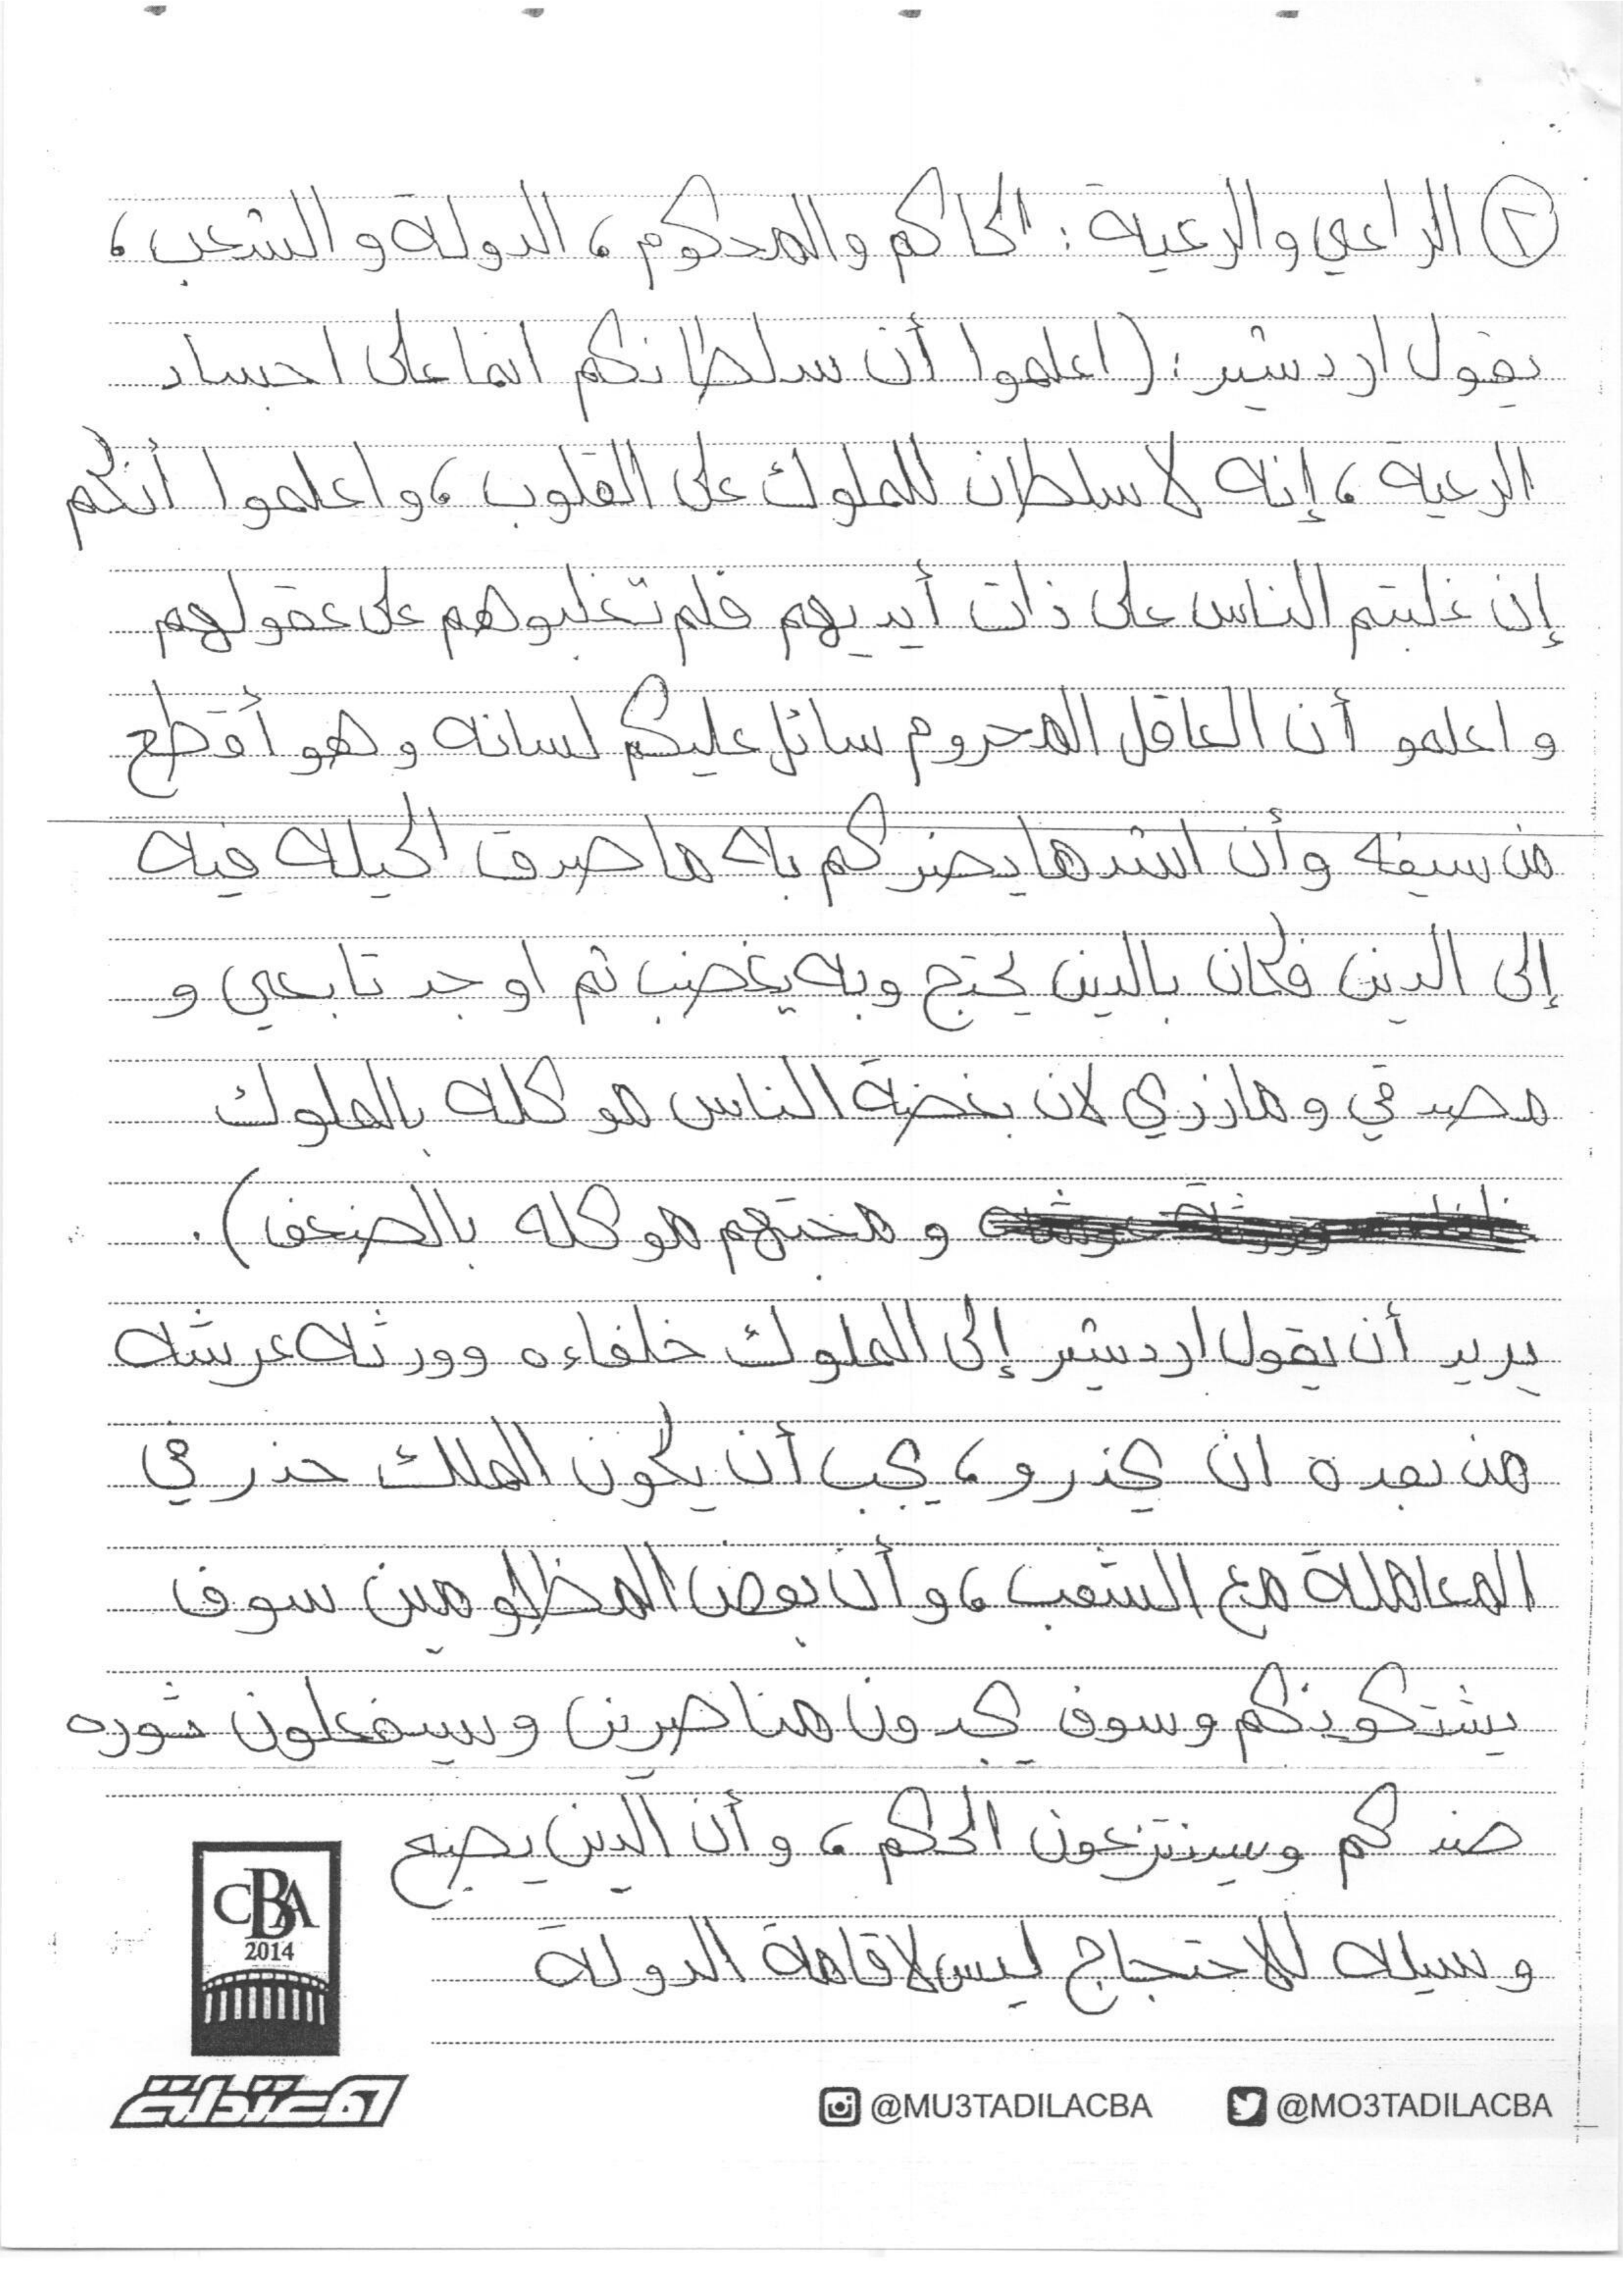 ٢ الراعي والرعية: الحاكم والمحكوم، الدولة والشعب،
يقول اردشير: (اعلموا أن سلطانكم انما على اجساد
الرعيه، إنه لا سلطان للملوك على القلوب، واعلموا أنكم
إن غلبتم الناس على ذات أيديهم فلم تغلبوهم على عقولهم
واعلمو أن العاقل المحروم سائل عليكم لسانه وهو أقطع
من سيفه وأن اشد ما يضركم به ما صرف الحيله فيه
إلى الدين فكان بالدين يحتج وبه يغضب ثم اوجد تابعي و
مصدقي ومازري لان بغضة الناس موكله بالملوك
ومحبتهم موكله بالضعف).
يريد أن يقول اردشير إلى الملوك خلفاءه وورثه عرشه
من بعده ان يحذرو، يجب أن يكون الملك حذر في
المعاملة مع الشعب، وأن بعض المظلومين سوف
يشتكونكم وسوف يجدون مناصرين وسيفعلون ثوره
ضدكم وسينتزعون الحكم، وأن الدين يصبح
وسيله للاحتجاج ليس لاقامة الدولة
CBA
2014
معتدلة
@MU3TADILACBA @MO3TADILACBA